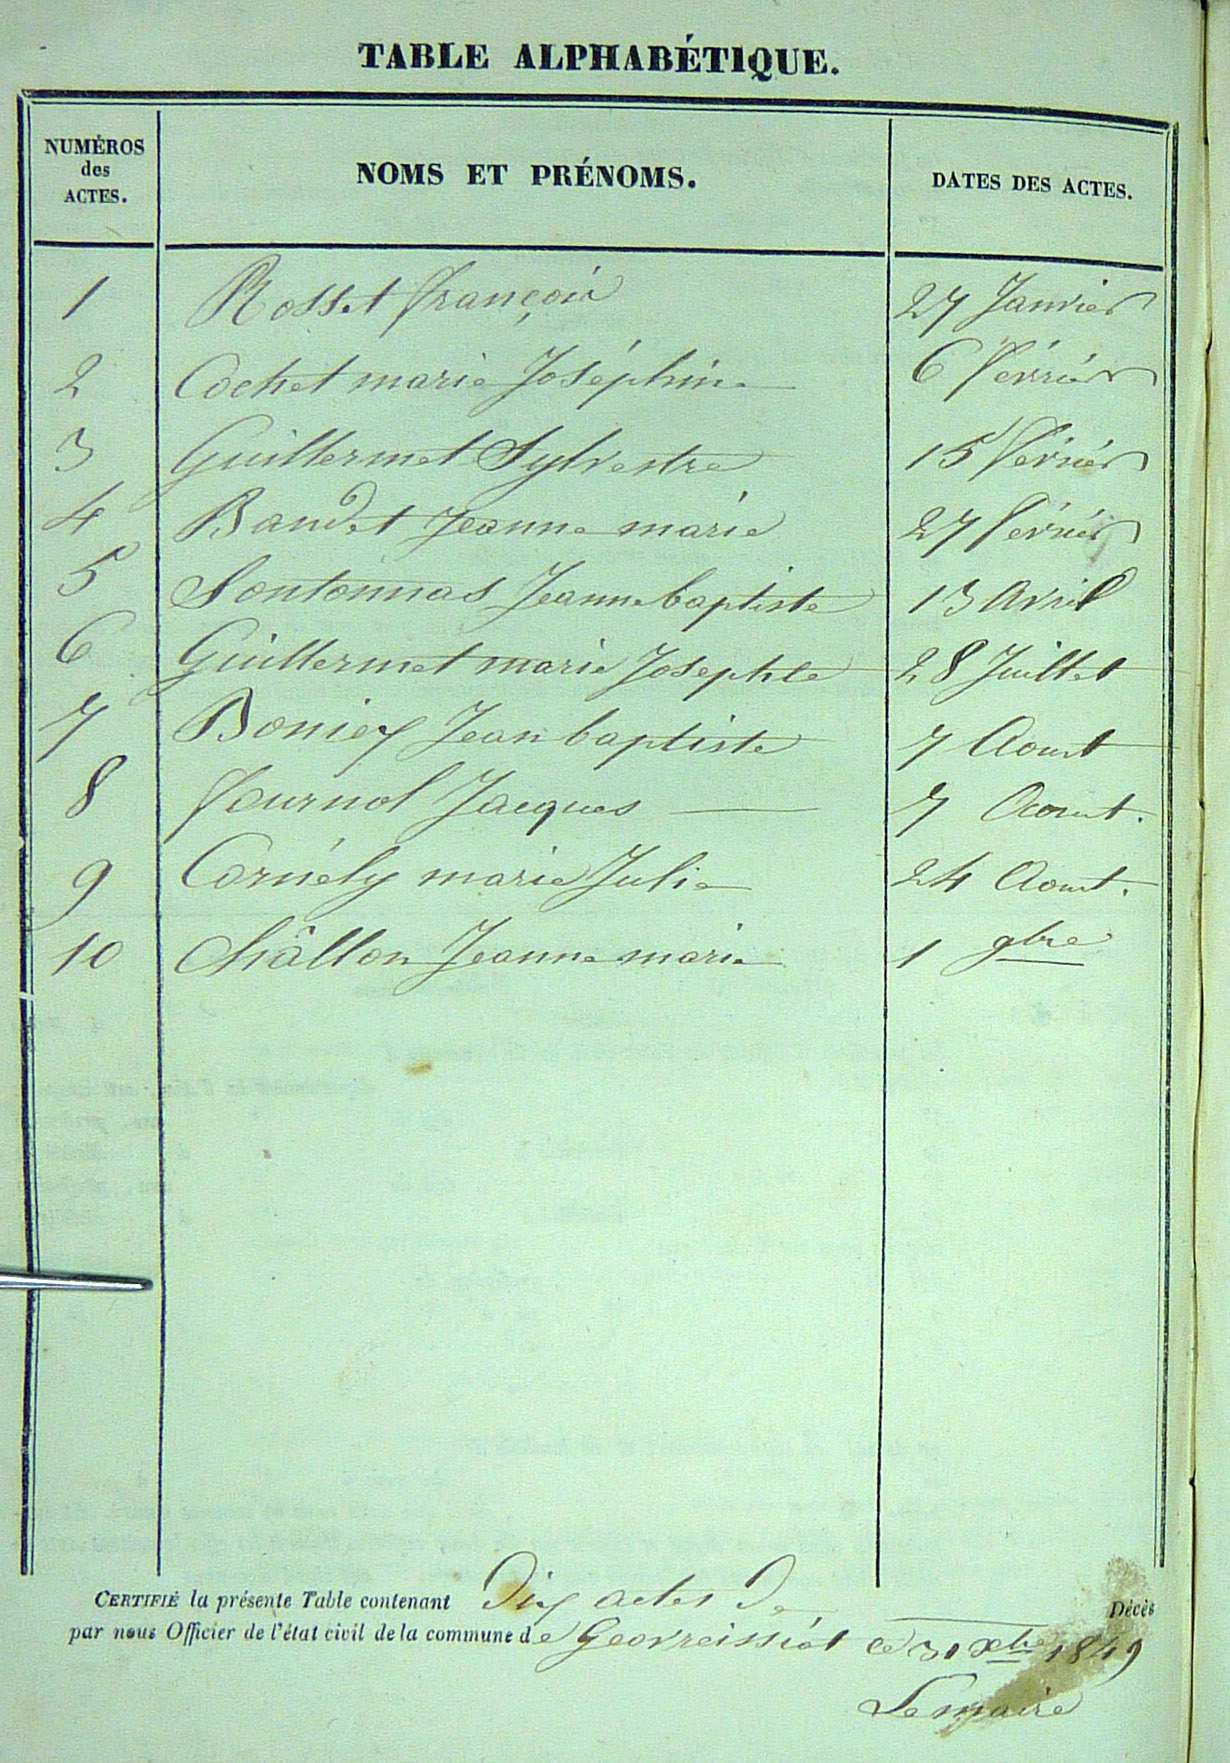 TABLE ALPHABÉTIQUE.
NUMÉROS
des
ACTES.
NOMS ET PRÉNOMS.
DATES DES ACTES.
1 Rosset françois 27 Janvier
2 Cochet marie Joséphine 6 févriér
3 Guillermet Sylvestre 15 févriér
4 Baudet Jeanne marie 27 févriér
5 Sontonnas Jeanne baptiste 13 avril
6 Guillermet marie Josephte 28 Juillet
7 Boniex Jean baptiste 7 Aout
8 fournol Jacques 7 Aout.
9 Cornély marie Julie 24 Aout.
10 Châllon Jeanne marie 1 9bre
CERTIFIÉ la présente Table contenant Dix actes de Décès
par nous Officier de l'état civil de la commune de Geovreissiat ce 31 Xbre 1849
Le maire